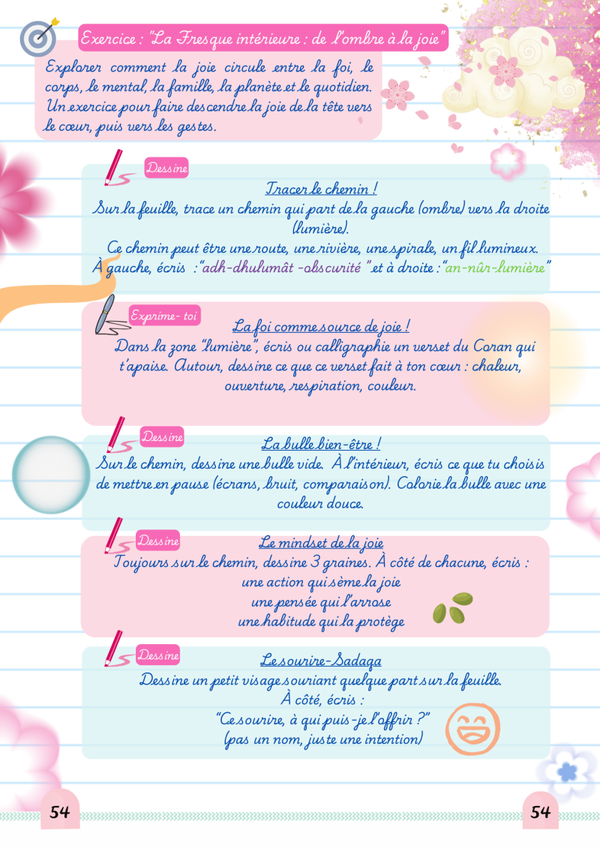 Exercice : "La Fresque intérieure : de l'ombre à la joie"
Explorer comment la joie circule entre la foi, le
corps, le mental, la famille, la planète et le quotidien.
Un exercice pour faire descendre la joie de la tête vers
le cœur, puis vers les gestes.
Dessine
Tracer le chemin !
Sur la feuille, trace un chemin qui part de la gauche (ombre) vers la droite
(lumière).
Ce chemin peut être une route, une rivière, une spirale, un fil lumineux.
À gauche, écris :"adh-dhulumât -obscurité " et à droite :"an-nûr-lumière"
Exprime- toi
La foi comme source de joie !
Dans la zone "lumière", écris ou calligraphie un verset du Coran qui
t'apaise. Autour, dessine ce que ce verset fait à ton cœur : chaleur,
ouverture, respiration, couleur.
Dessine
La bulle bien-être !
Sur le chemin, dessine une bulle vide. À l'intérieur, écris ce que tu choisis
de mettre en pause (écrans, bruit, comparaison). Colorie la bulle avec une
couleur douce.
Dessine
Le mindset de la joie
Toujours sur le chemin, dessine 3 graines. À côté de chacune, écris :
une action qui sème la joie
une pensée qui l'arrose
une habitude qui la protège
Dessine
Le sourire-Sadaqa
Dessine un petit visage souriant quelque part sur la feuille.
À côté, écris :
"Ce sourire, à qui puis-je l'offrir ?"
(pas un nom, juste une intention)
54
54